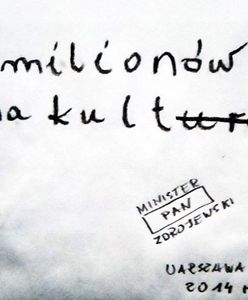 milionów
na kultur
MINISTER
PAN
ZDROJEWSKI
WARSZAWA
2014 r